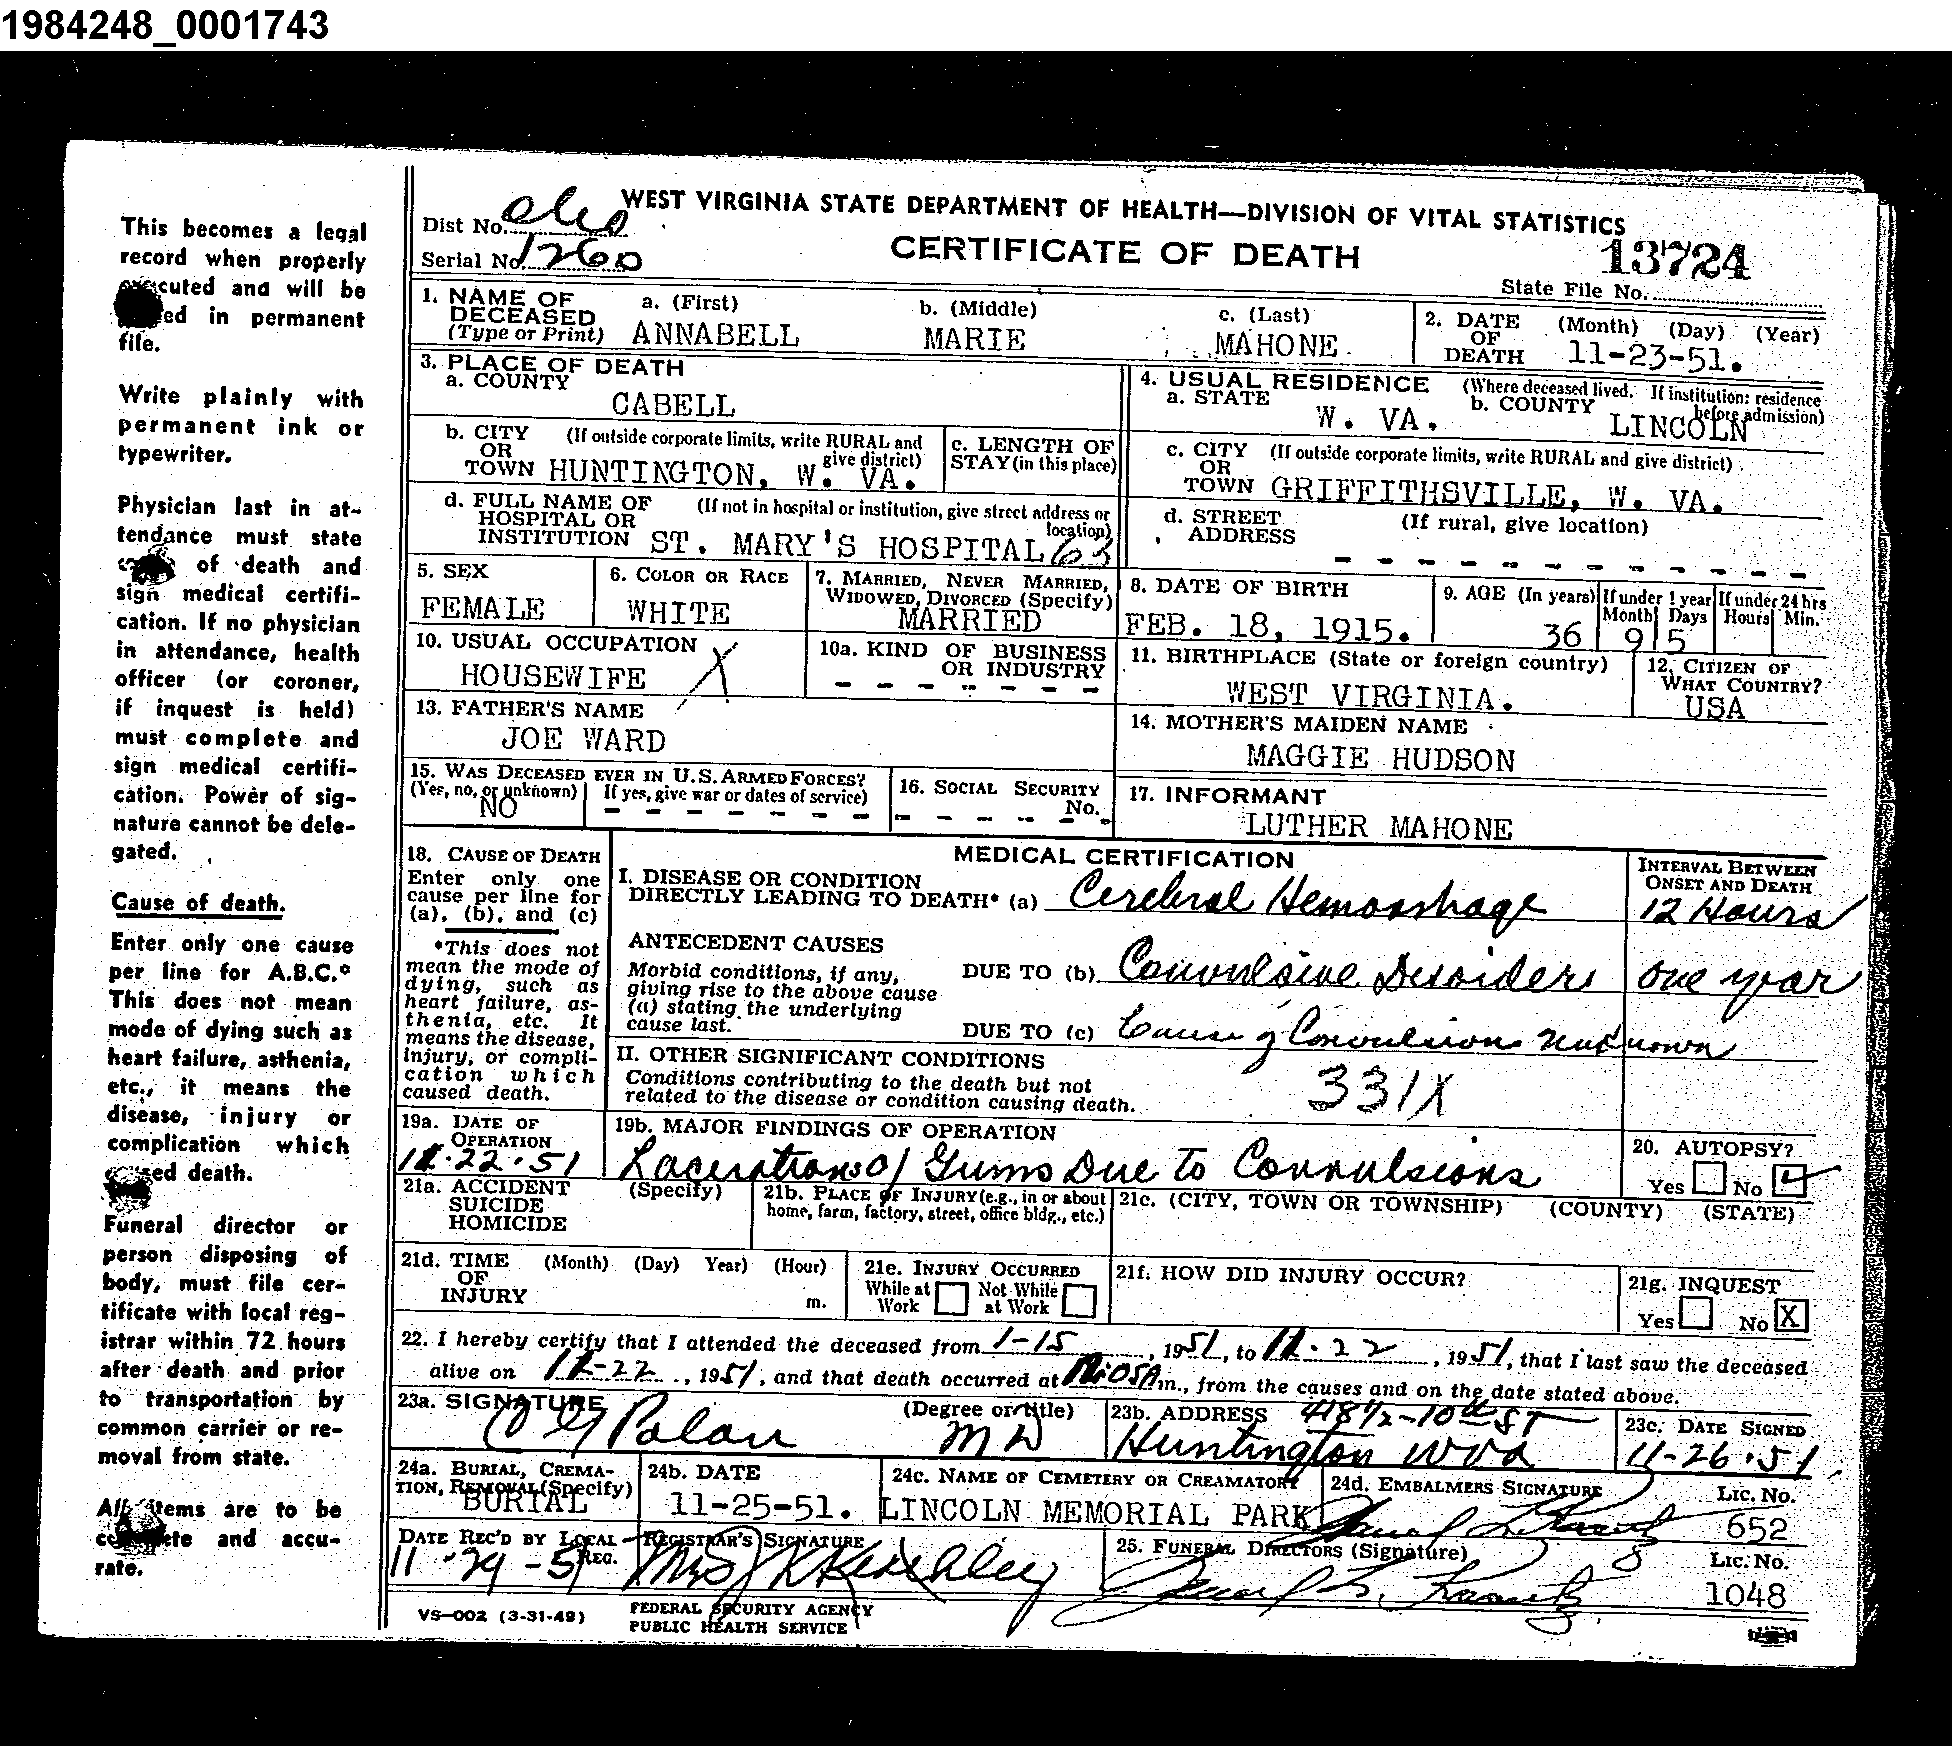 1984248_0001743
This becomes a legal
record when properly
executed and will be
ed in permanent
file.
Write plainly with
permanent ink or
typewriter.
Physician last in at-
tendance must state
of death and
sign medical certifi-
cation. If no physician
in attendance, health
officer (or coroner,
if inquest is held)
must complete and
sign medical certifi-
cation. Power of sig-
nature cannot be dele-
gated.
Cause of death.
Enter only one cause
per line for A.B.C.*
This does not mean
mode of dying such as
heart failure, asthenia,
etc., it means the
disease, injury or
complication which
caused death.
Funeral director or
person disposing of
body, must file cer-
tificate with local reg-
istrar within 72 hours
after death and prior
to transportation by
common carrier or re-
moval from state.
All items are to be
complete and accu-
rate.
WEST VIRGINIA STATE DEPARTMENT OF HEALTH—DIVISION OF VITAL STATISTICS
CERTIFICATE OF DEATH
Dist No.
Serial No. 1260
13724
State File No.
1. NAME OF DECEASED (Type or Print) a. (First) ANNABELL b. (Middle) MARIE c. (Last) MAHONE
2. DATE OF DEATH (Month) (Day) (Year) 11-23-51.
3. PLACE OF DEATH
a. COUNTY CABELL
b. CITY OR TOWN (If outside corporate limits, write RURAL and give district) HUNTINGTON, W. VA.
c. LENGTH OF STAY (in this place)
d. FULL NAME OF HOSPITAL OR INSTITUTION (If not in hospital or institution, give street address or location) ST. MARY'S HOSPITAL 63
4. USUAL RESIDENCE (Where deceased lived. If institution: residence before admission)
a. STATE W. VA. b. COUNTY LINCOLN
c. CITY OR TOWN (If outside corporate limits, write RURAL and give district) GRIFFITHSVILLE, W. VA.
d. STREET ADDRESS (If rural, give location) - - - - - - - - - - - -
5. SEX FEMALE
6. COLOR OR RACE WHITE
7. MARRIED, NEVER MARRIED, WIDOWED, DIVORCED (Specify) MARRIED
8. DATE OF BIRTH FEB. 18, 1915.
9. AGE (In years) 36 If under 1 year Month 9 Days 5 If under 24 hrs Hours Min.
10. USUAL OCCUPATION HOUSEWIFE X
10a. KIND OF BUSINESS OR INDUSTRY - - - - - - -
11. BIRTHPLACE (State or foreign country) WEST VIRGINIA.
12. CITIZEN OF WHAT COUNTRY? USA
13. FATHER'S NAME JOE WARD
14. MOTHER'S MAIDEN NAME MAGGIE HUDSON
15. WAS DECEASED EVER IN U.S. ARMED FORCES? (Yes, no, or unknown) NO If yes, give war or dates of service) - - - - - - -
16. SOCIAL SECURITY No. - - - - - -
17. INFORMANT LUTHER MAHONE
18. CAUSE OF DEATH
Enter only one
cause per line for
(a), (b), and (c)
*This does not
mean the mode of
dying, such as
heart failure, as-
thenia, etc. It
means the disease,
injury, or compli-
cation which
caused death.
MEDICAL CERTIFICATION
INTERVAL BETWEEN ONSET AND DEATH
I. DISEASE OR CONDITION
DIRECTLY LEADING TO DEATH* (a) Cerebral Hemorrhage 12 Hours
ANTECEDENT CAUSES
Morbid conditions, if any,
giving rise to the above cause
(a) stating the underlying
cause last.
DUE TO (b) Convulsive Disorders one year
DUE TO (c) Cause of Convulsions unknown
II. OTHER SIGNIFICANT CONDITIONS
Conditions contributing to the death but not
related to the disease or condition causing death.
331X
19a. DATE OF OPERATION 11.22.51
19b. MAJOR FINDINGS OF OPERATION
Lacerations of Gums Due To Convulsions
20. AUTOPSY?
Yes No
21a. ACCIDENT SUICIDE HOMICIDE (Specify)
21b. PLACE OF INJURY (e.g., in or about home, farm, factory, street, office bldg., etc.)
21c. (CITY, TOWN OR TOWNSHIP) (COUNTY) (STATE)
21d. TIME OF INJURY (Month) (Day) Year) (Hour) m.
21e. INJURY OCCURRED While at Work Not While at Work
21f. HOW DID INJURY OCCUR?
21g. INQUEST Yes No X
22. I hereby certify that I attended the deceased from 1-15, 1951, to 11.22, 1951, that I last saw the deceased
alive on 11-22, 1951, and that death occurred at m., from the causes and on the date stated above.
23a. SIGNATURE Polan (Degree or title) MD
23b. ADDRESS 418 1/2-10th ST
Huntington WVa
23c. DATE SIGNED 11-26.51
24a. BURIAL, CREMATION, REMOVAL (Specify) BURIAL
24b. DATE 11-25-51.
24c. NAME OF CEMETERY OR CREAMATORY LINCOLN MEMORIAL PARK
24d. EMBALMERS SIGNATURE LIC. NO. 652
DATE REC'D BY LOCAL REG. 11-29-51
REGISTRAR'S SIGNATURE Mrs
25. FUNERAL DIRECTORS (Signature) LIC. NO. 1048
VS—002 (3-31-49)
FEDERAL SECURITY AGENCY
PUBLIC HEALTH SERVICE